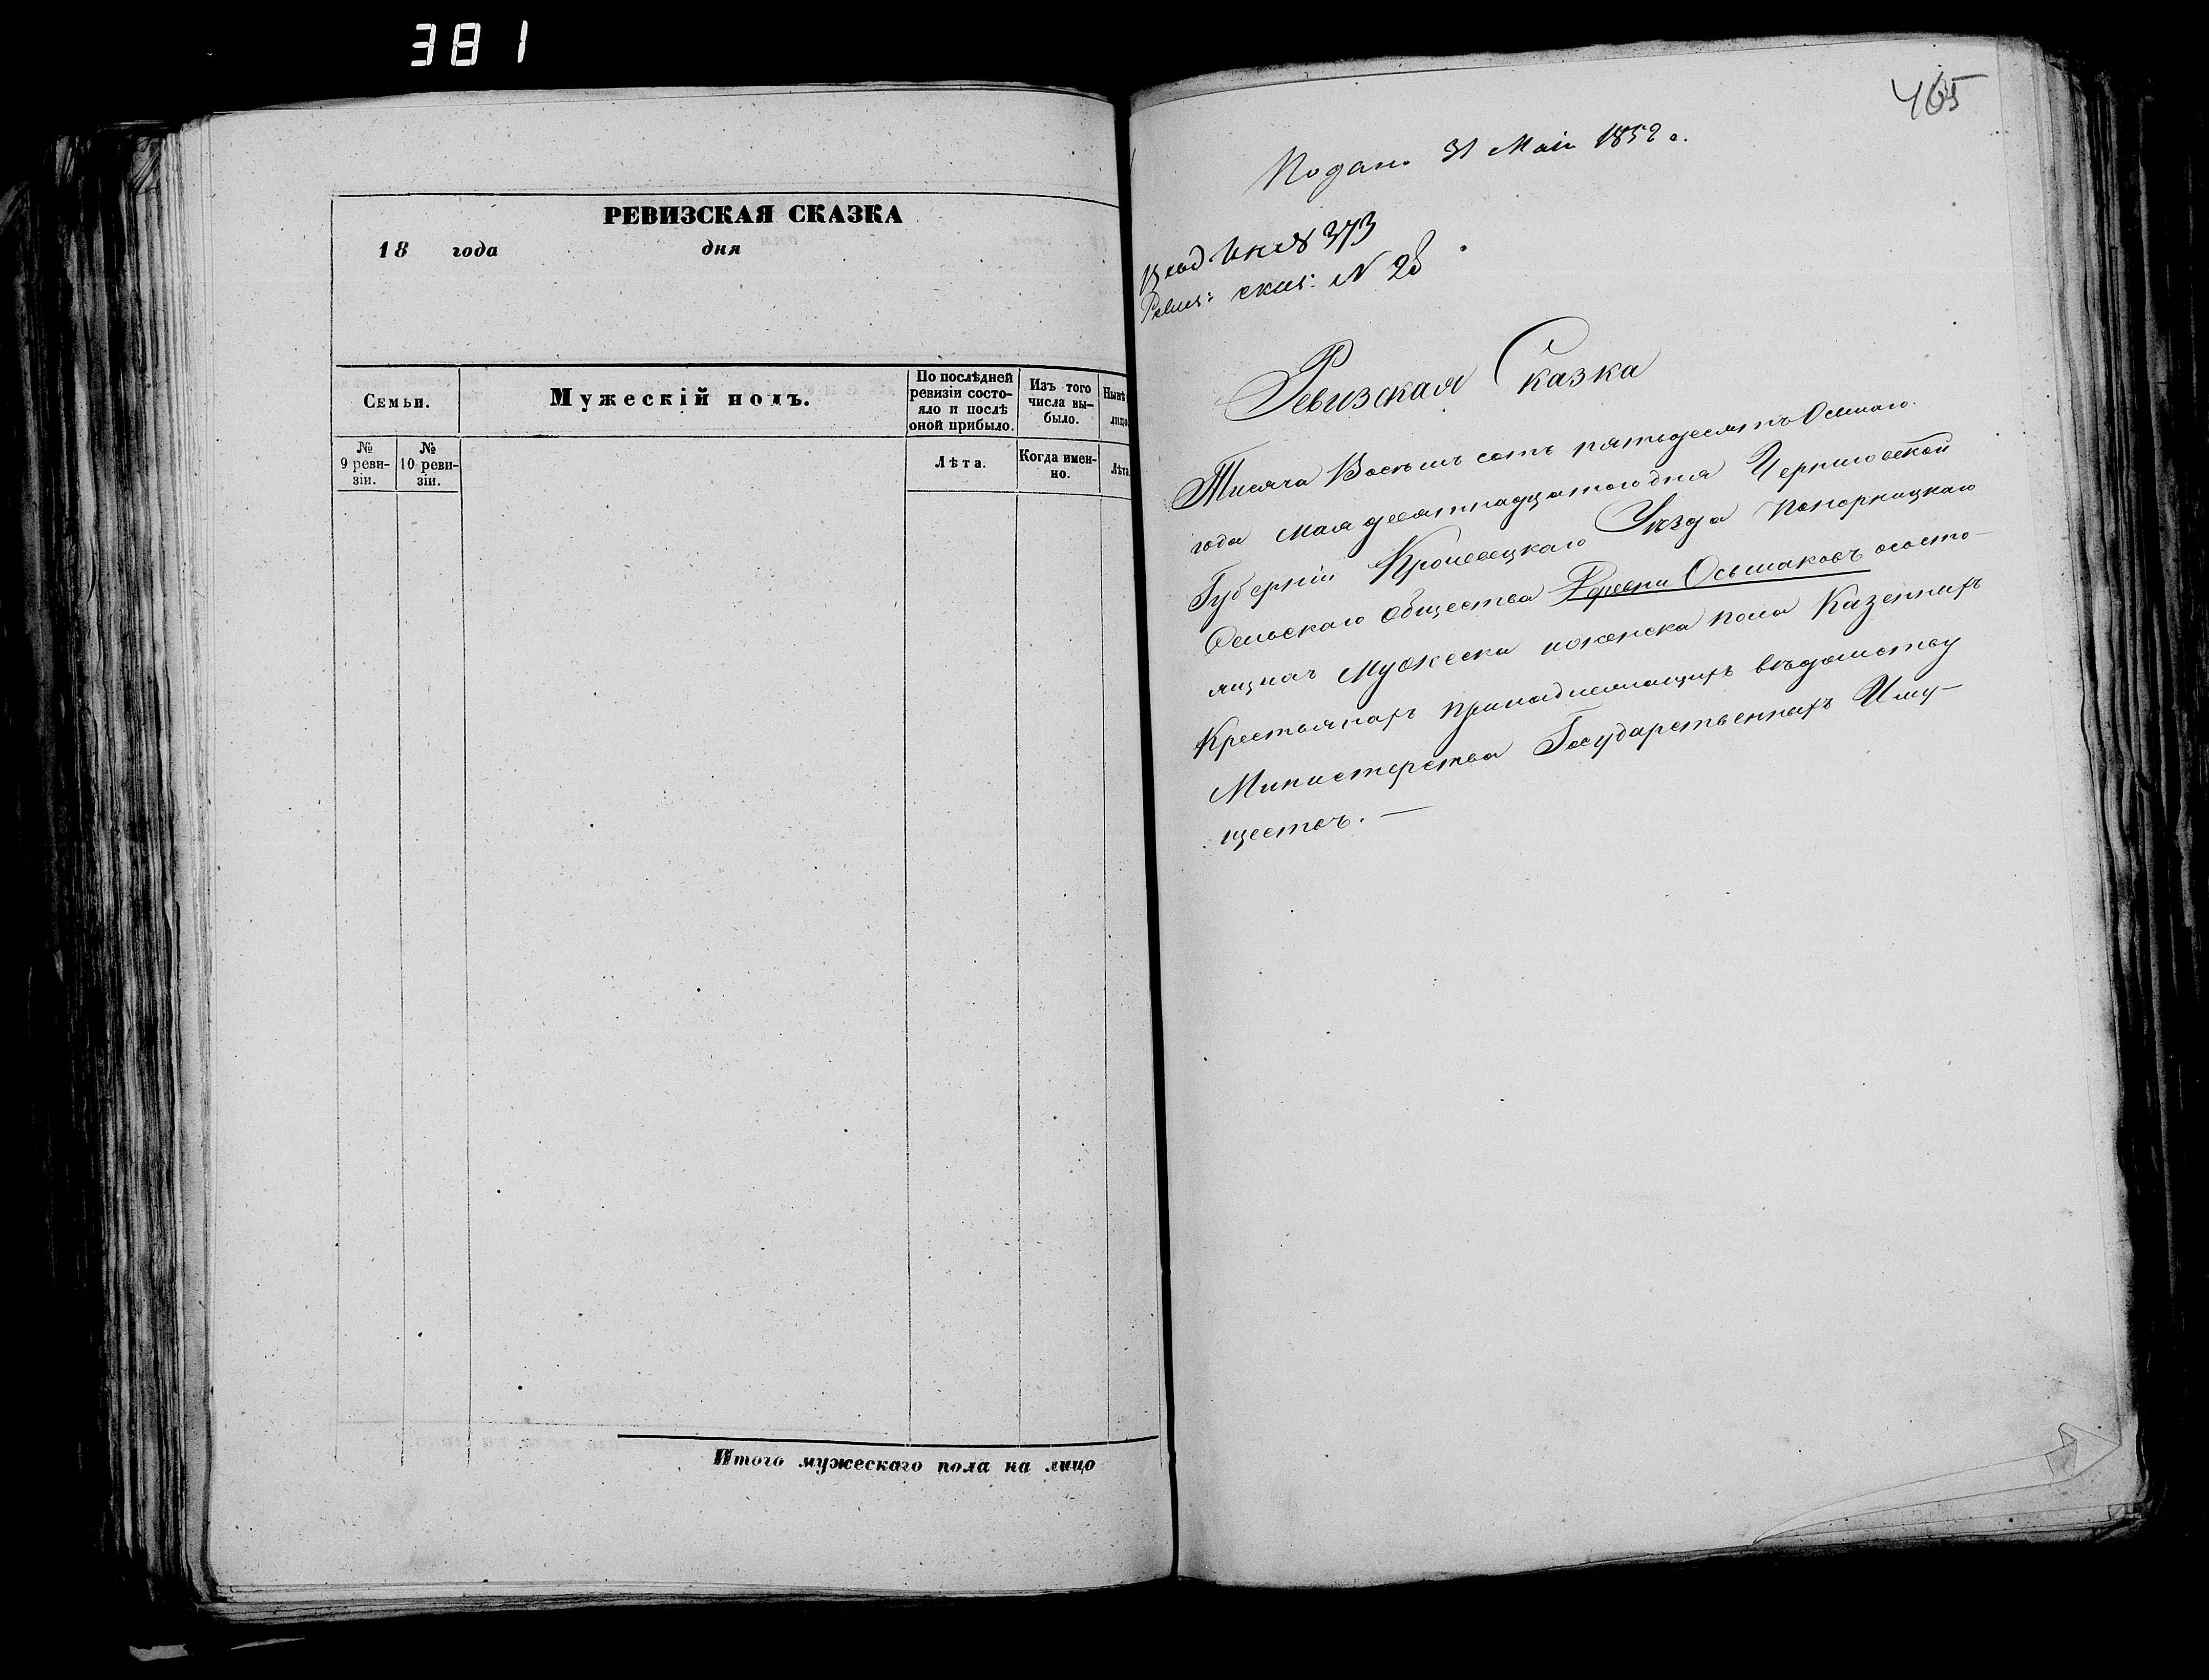 381
РЕВИЗСКАЯ СКАЗКА
18 года дня
Семьи.
Мужескій полъ.
По послѣдней ревизіи состо-
яло и послѣ оной прибыло.
Изъ того числа вы-
было.
Нынѣ лицо
№ 9 реви-
зіи.
№ 10 реви-
зіи.
Лѣта.
Когда имен-
но.
Лѣта
Итого мужескаго пола на лицо
465
Подан. 31 Маія 1858 г.
№ 373
Ревиз: сказ: № 28
Ревизская Сказка
Тисяча Восѣмъ сотъ пятьдесятъ Осмаго
года мая девятнадцатого дня Черниговской
Губерніи Кролевецкаго Уѣзда Понорницкаго
Сельскаго Общества Деревни Осьмаковъ ососто-
ящихъ Мужеска иженска пола Казенныхъ
Крестьянахъ принадлежащихъ вѣдомству
Министерства Государственныхъ Иму-
ществъ. —